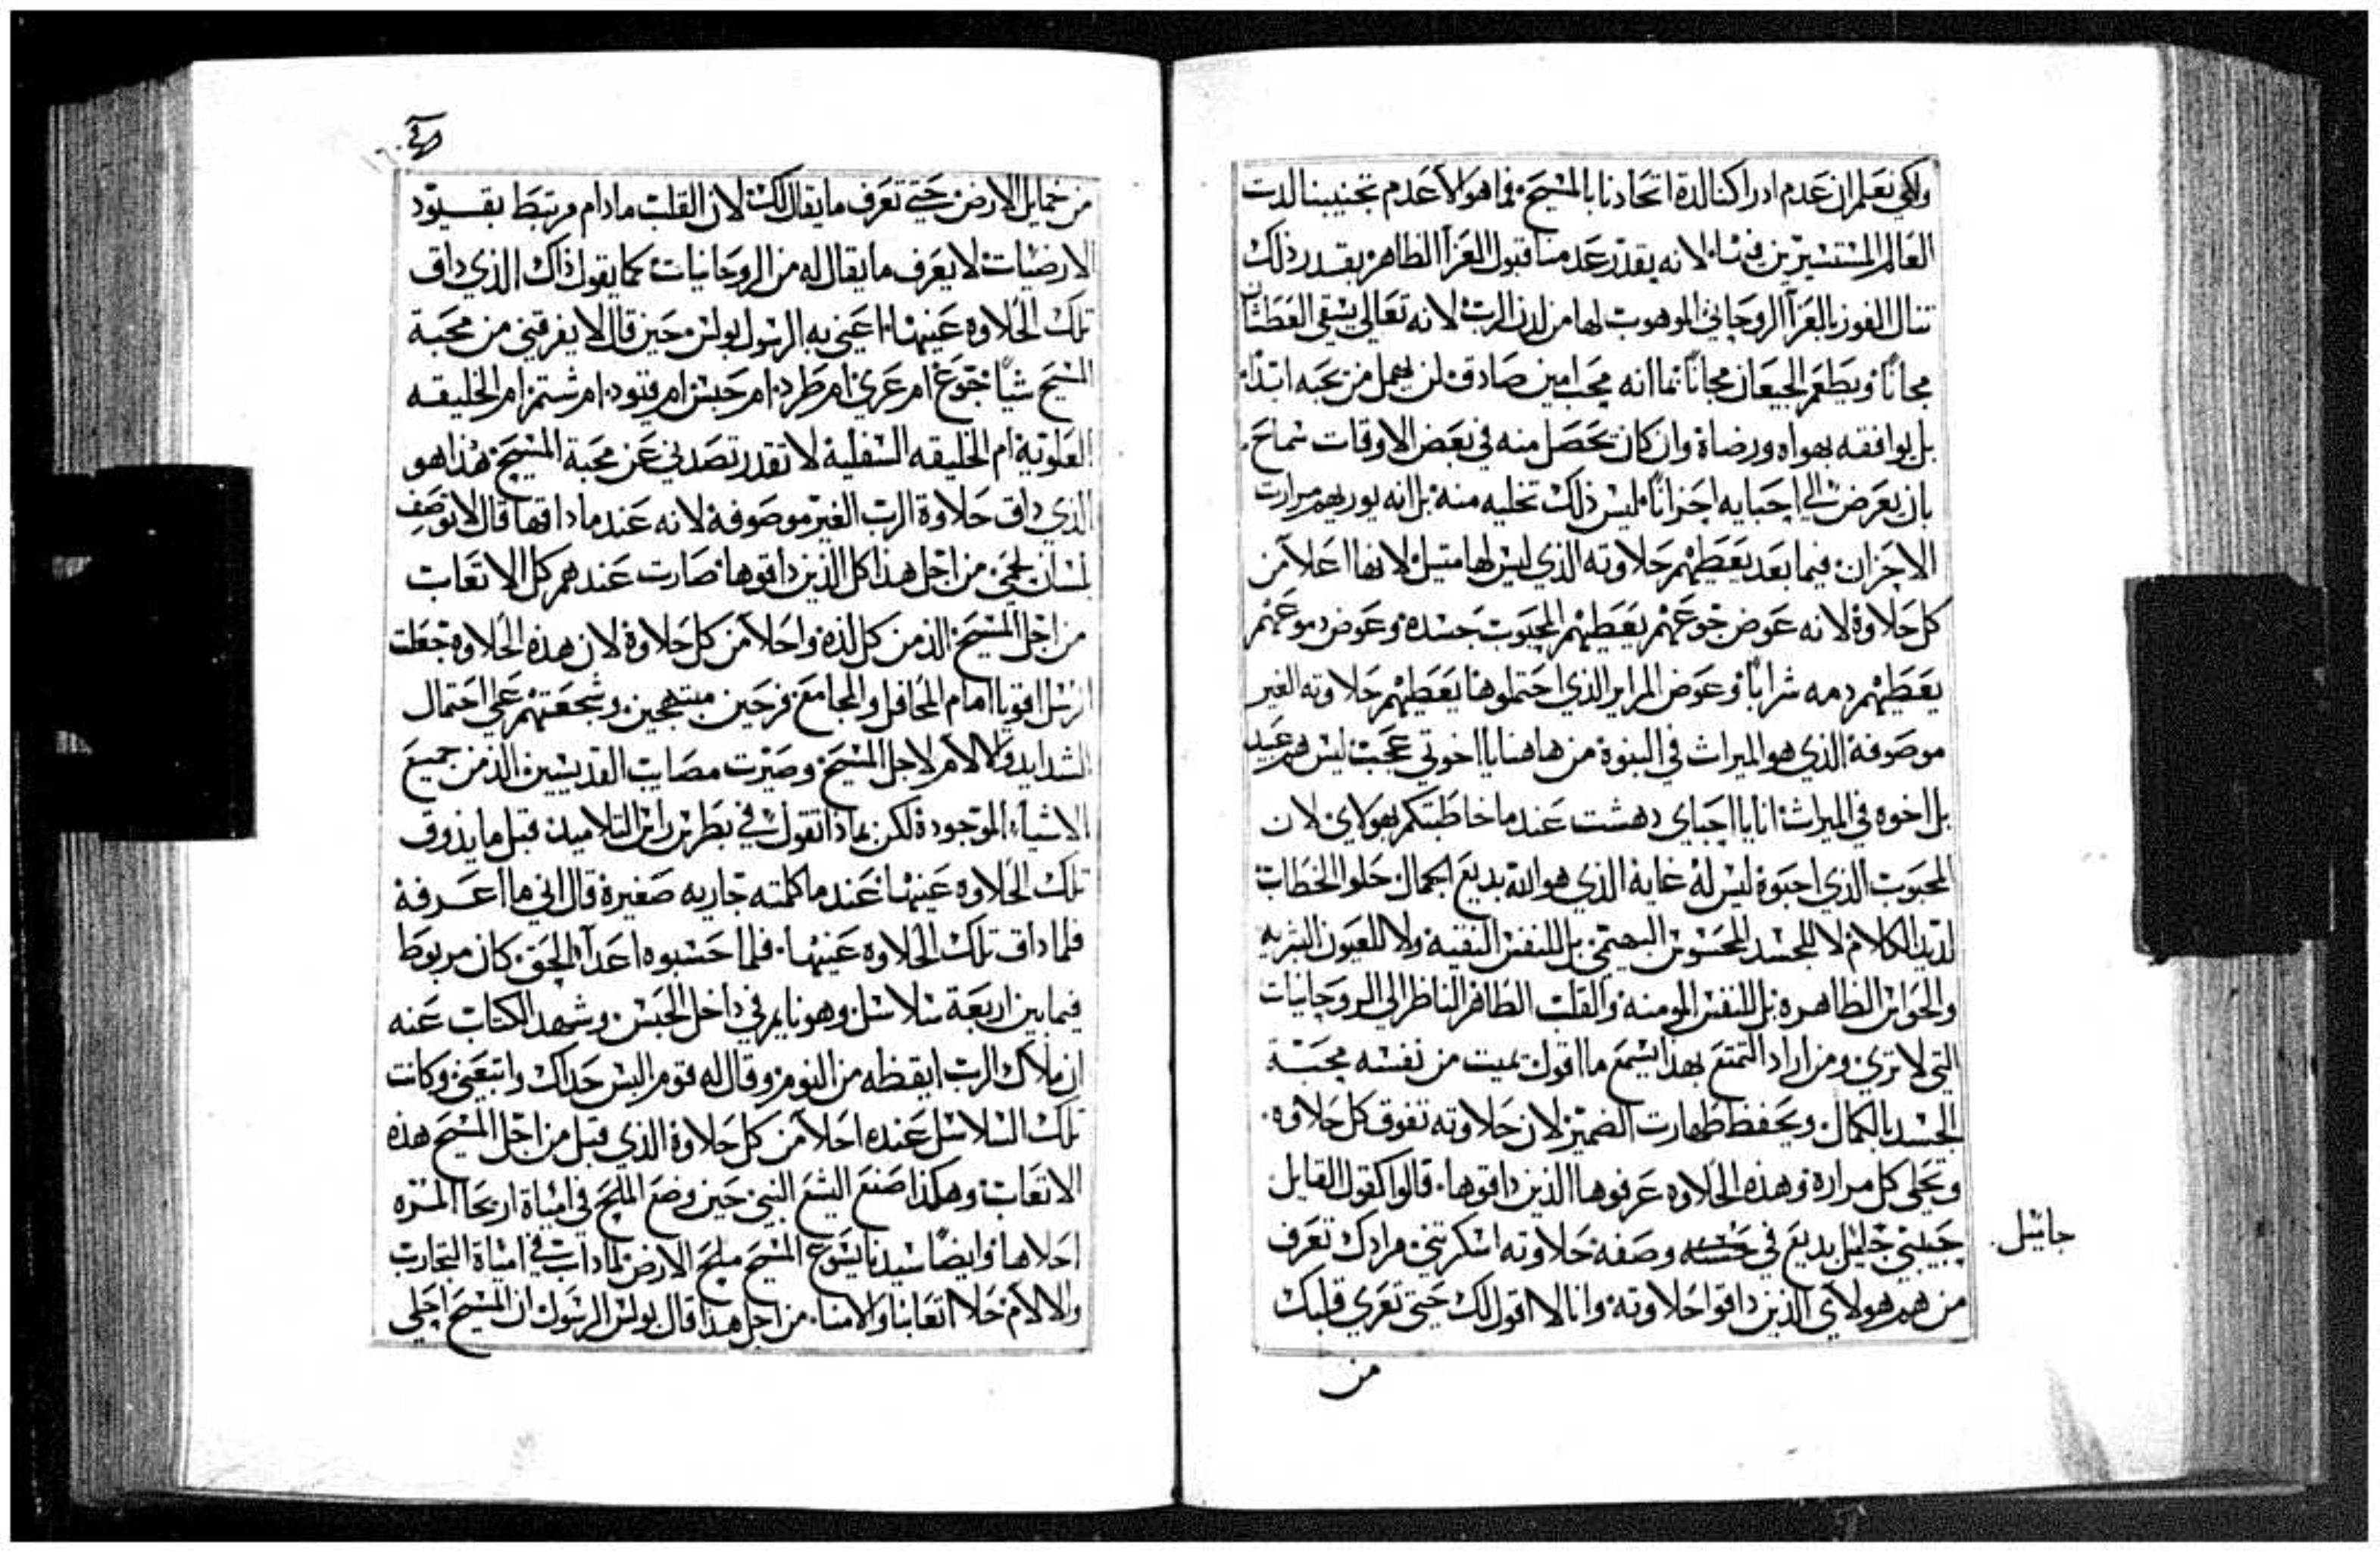 ولكي نعلم ان عدم ادراكنا لدة اتحادنا بالمسيح فما هو الا عدم تجنيبنا لدت
العالم المستسيرين فينا لانه بقدر عدمنا قبول العزآ الظاهر بقدر ذلك
تنال الفوز بالعزآ الروحاني الموهوب لها من لدن الرب لانه تعالي يسقي العطشان
مجاناً ويطعم الجيعان مجاناً بما انه محب امين صادق لن يهمل من يحبه ابداً
بل يوافقه بهواه ورضاة وان كان يحصل منه في بعض الاوقات سماح
بان يعرض الي احبايه احزاناً ليس ذلك تخليه منه بل انه يوريهم مرارت
الاحزان فيما بعد يعطيهم حلاوته الذي ليس لها متيل لانها اعلا من
كل حلاوة لانه عوض جوعهم يعطيهم المحبوب جسده وعوض دموعهم
يعطيهم دمه شراباً وعوض المراير الذي احتملوها يعطيهم حلاوته الغير
موصوفة الذي هو الميراث في البنوة من هاهنا يا اخوتي عجبت ليس هم عبيد
بل اخوه في الميراث انا يا احباي دهشت عندما خاطبتكم بهولاي لان
المحبوب الذي احبوة ليس له غاية الذي هو الله بديع الجمال حلو الخطاب
لديد الكلام لا للجسد المحسوس البهيمي بل للنفس النقية ولا للعيون البشريه
والحواس الظاهره بل للنفس المومنه والقلب الطاهر الناظر الي الروحانيات
التي لا تري ومن اراد التمتع بهذا يسمع ما اقول يميت من نفسه محبة
الجسد بالكمال ويحفظ طهارت الضمير لان حلاوته تفوق كل حلاوه
وتحلي كل مرارة وهذه الحلاوه عرفوها الذين داقوها قالوا كقول القايل
حبيبي جليل بديع في حسنه وصفة حلاوته اسكرتني مرادك تعرف
من هم هولاي الذين داقوا حلاوته وانا لا اقول لك حتي تعري قلبك
من
من خمايل الارض حتي تعرف ما يقال لك لان القلب مادام مرتبط بقيود
الارضيات لا يعرف ما يقال له من الروحانيات كما يقول ذاك الذي داق
تلك الحلاوه عينها اعني به الرسول بولس حين قال لا يفرقني من محبة
المسيح شياً جوع ام عري ام طرد ام حبس ام قيود ام شتم ام الخليقه
العلوية ام الخليقه السفلية لا تقدر تصدني عن محبة المسيح هذا هو
الذي داق حلاوة الرب الغير موصوفة لانه عندما داقها قال لا توصف
لسان لحمي من اجل هذا كل الذين داقوها صارت عندهم كل الاتعاب
من اجل المسيح الذ من كل لذه واحلا من كل حلاوة لان هذه الحلاوه جعلت
الرسل اقويا امام المحافل والمجامع فرحين مبتهجين وشجعتهم علي احتمال
الشدايد والالام لاجل المسيح وصيرت مصايب القديسين الذ من جميع
الاشياء الموجودة لكن بماذا تقول في بطرس راس التلاميد قبل ما يذوق
تلك الحلاوه عينها عندما كلمته جاريه صغيرة قال اني ما اعرفة
فلما داق تلك الحلاوه عينها فلما حسبوه اعدآ الحق كان مربوط
فيما بين اربعة سلاسل وهو نايم في داخل الحبس وشهد الكتاب عنه
ان ملاك الرب ايقظه من النوم وقال له قوم البس حداك واتبعني وكانت
تلك السلاسل عنده احلا من كل حلاوة الذي قبل من اجل المسيح هذه
الاتعاب وهكذا صنع اليشع النبي حين وضع الملح في امياة اريحا المره
احلاها وايضاً سيدنا يسوع المسيح ملح الارض لما داب في امياة التجارب
والالام حلا اتعابنا والامنا من اجل هذا قال بولس الرسول ان المسيح احلي